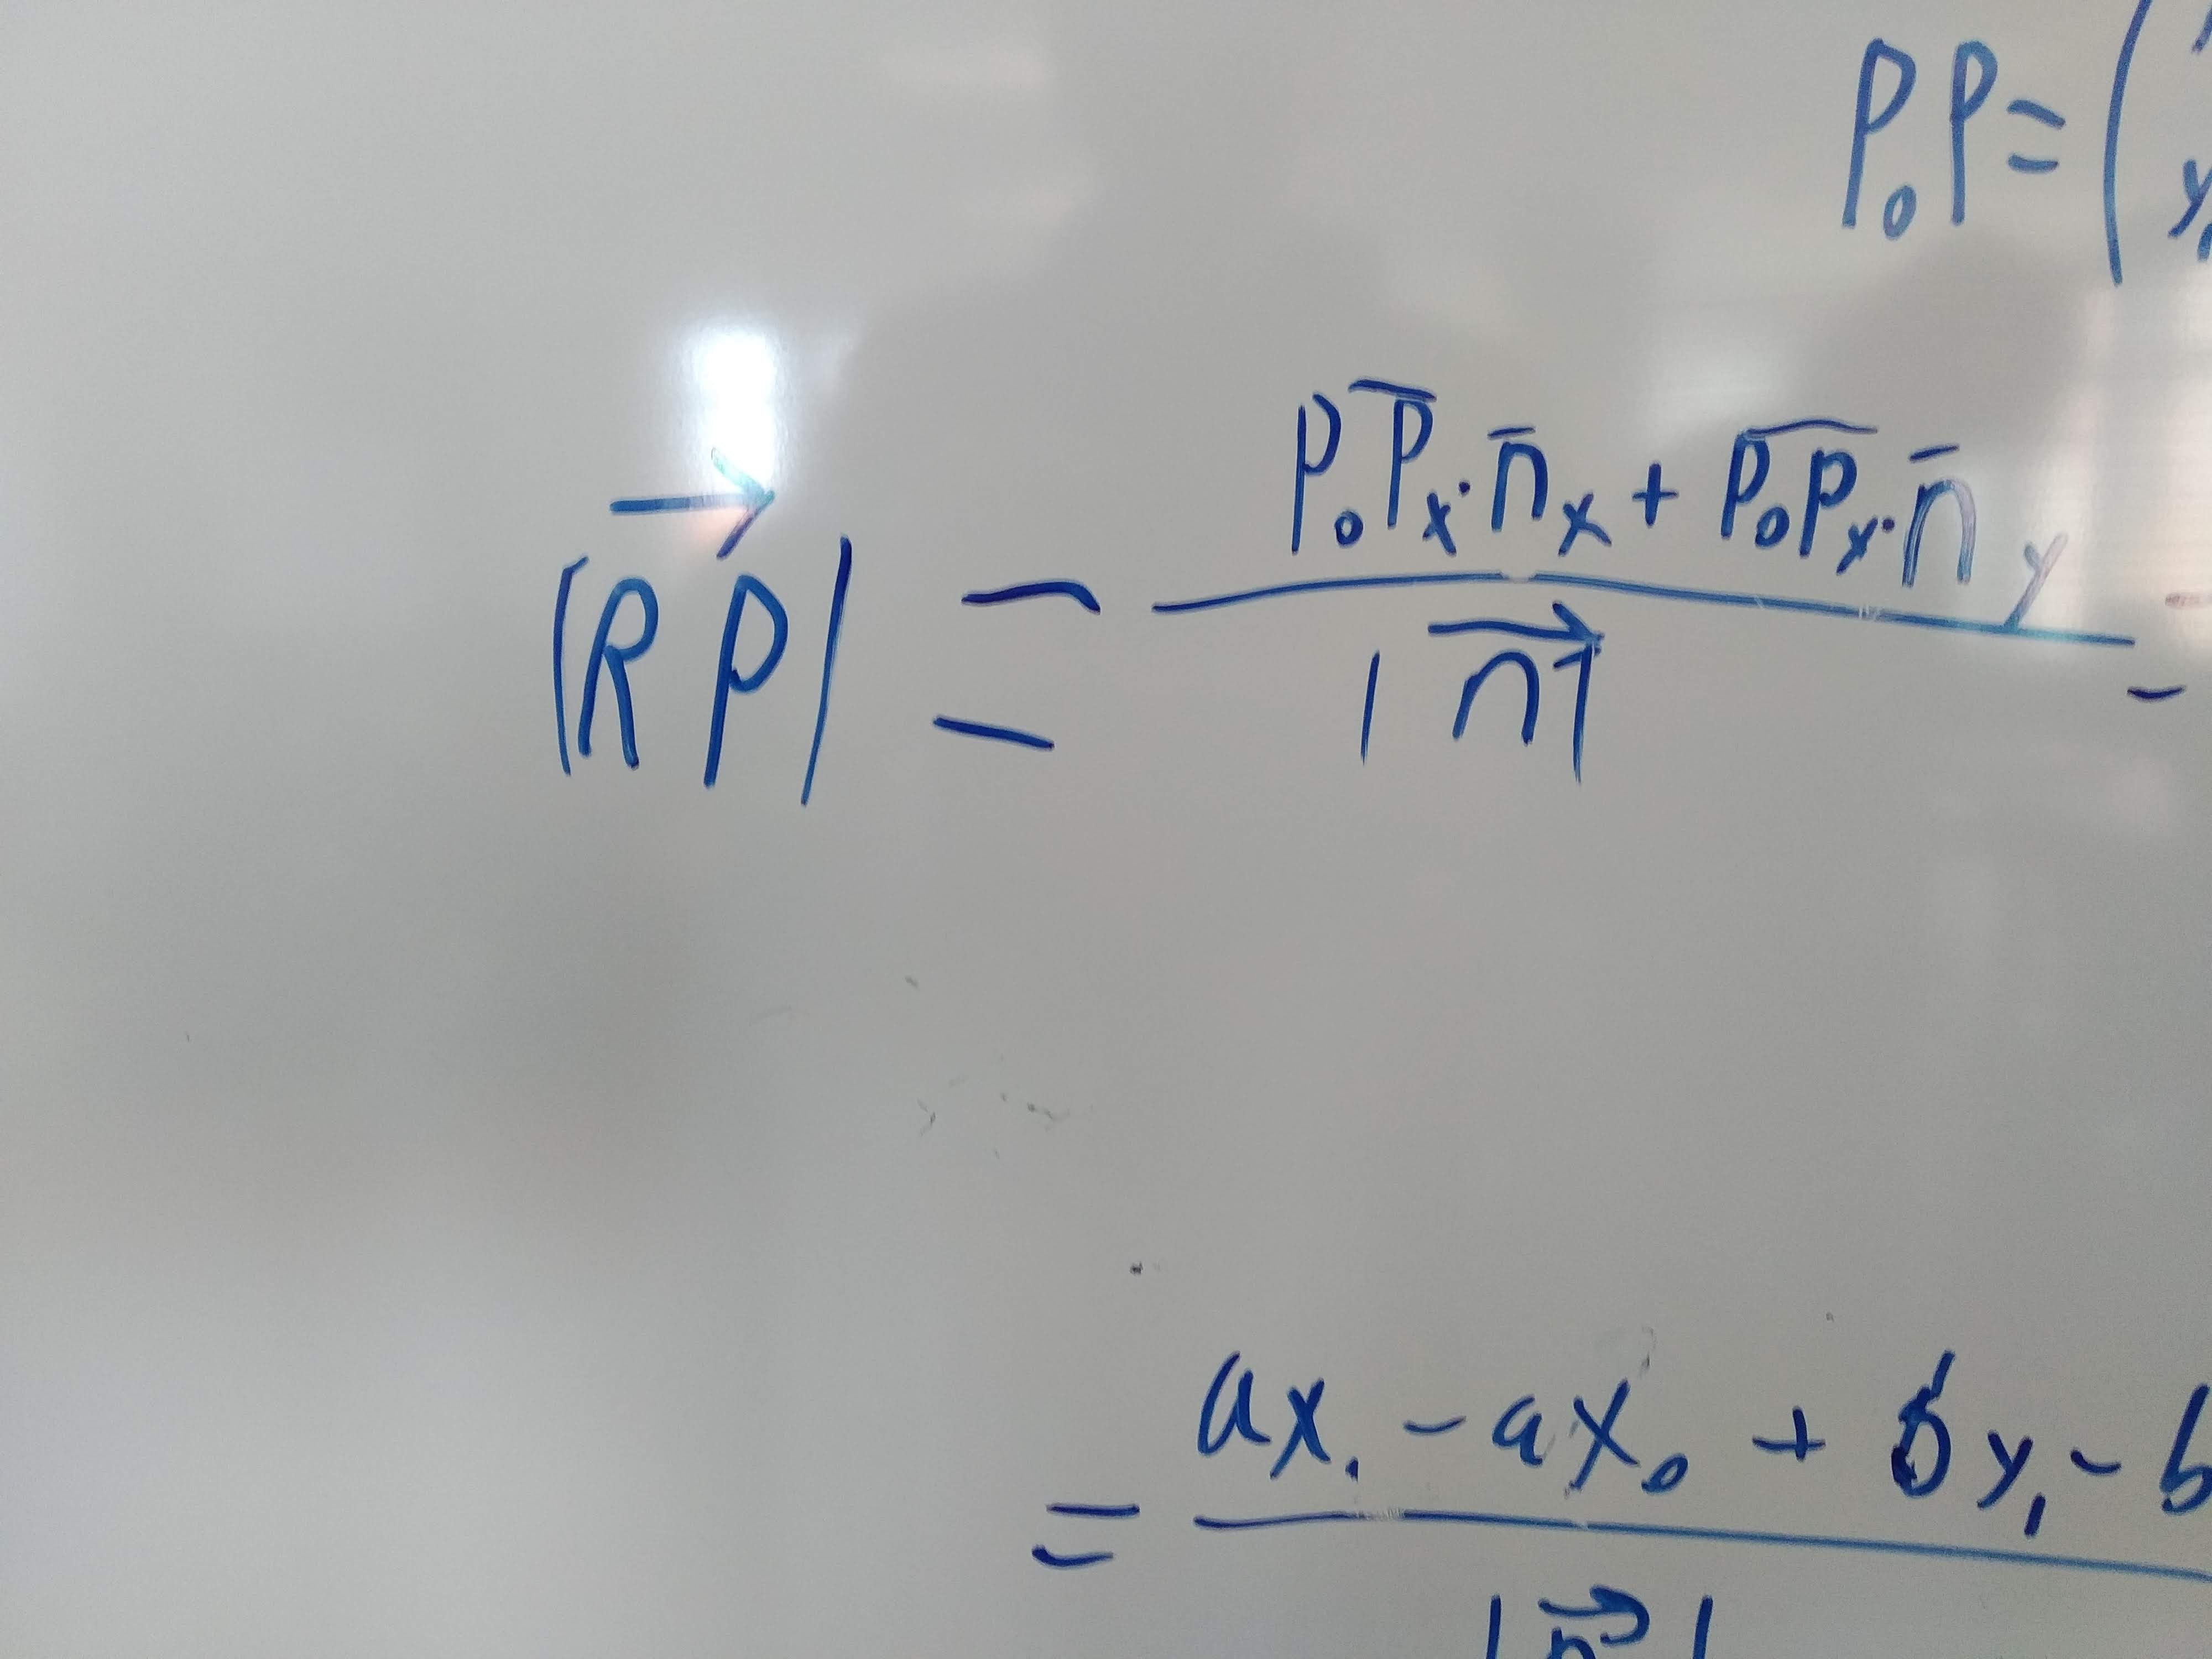 P₀P = (
y₁
|R⃗P⃗| = P₀P̅ₓ · n̅ₓ + P̅₀P̅ₓ · n̅ᵧ
|n⃗|
= ax₁ - ax₀ + by₁ - b
|n⃗|